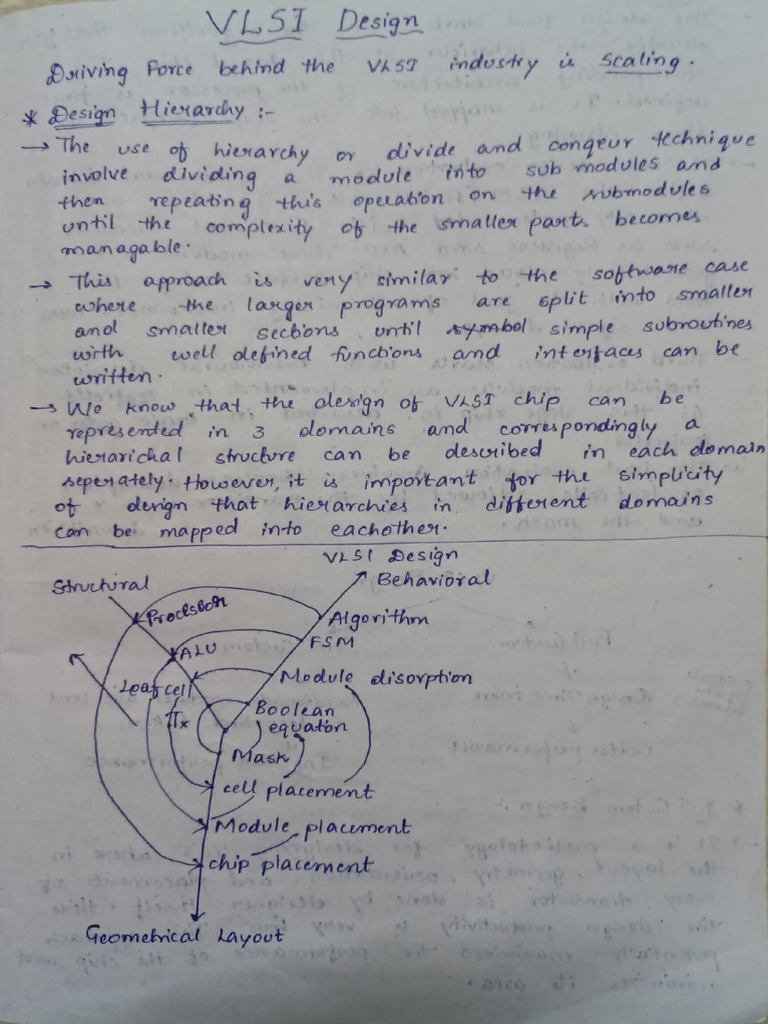 VLSI Design
Driving Force behind the VLSI industry is Scaling.
* Design Hierarchy :-
→ The use of hierarchy or divide and conqeur technique
involve dividing a module into sub modules and
then repeating this operation on the submodules
until the complexity of the smaller parts becomes
managable.
→ This approach is very similar to the software case
where the larger programs are split into smaller
and smaller sections until symbol simple subroutines
with well defined functions and interfaces can be
written.
→ We know that the design of VLSI chip can be
represented in 3 domains and correspondingly a
hierarichal structure can be described in each domain
seperately. However, it is important for the simplicity
of design that hierarchies in different domains
can be mapped into eachother.
VLSI Design
Structural
Behavioral
Processor
Algorithm
ALU
FSM
Leafcell
Module disorption
Boolean
equaton
Mask
cell placement
Module placement
chip placement
Geometrical Layout